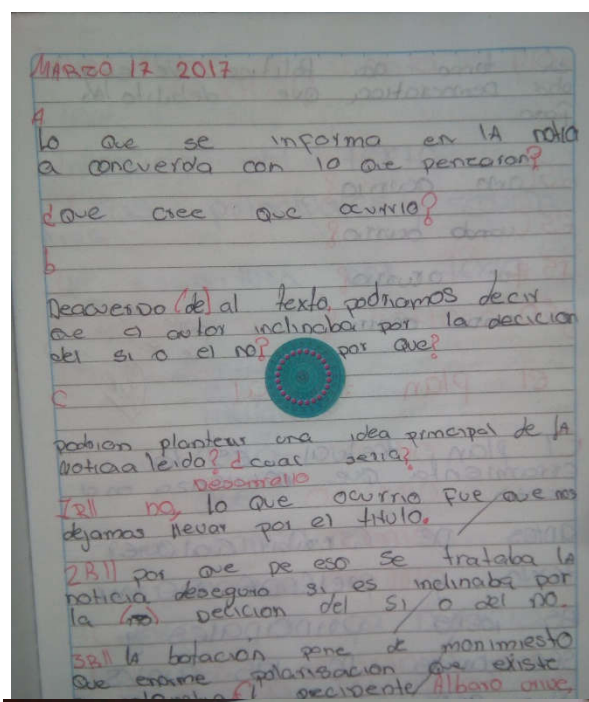 MARZO 17 2017
A
Lo que se informa en lA noticia
a concuerda con lo que pencaron?
¿Que cree que ocurrio?
b
Deacuerdo (de) al texto, podriamos decir
que el autor inclinaba por la decicion
del si o el no? por que?
C
podrian plantear una idea principal de lA
Noticia leida? ¿cual seria?
Desarrollo
1R// no, lo que ocurrio fue que nos
dejamos llevar por el titulo.
2R// por que de eso se trataba lA
noticia deseguro si es inclinaba por
la (no) Decicion del si o del no.
3R// lA botacion pone de manimiesto
que enorme polarisacion que existe